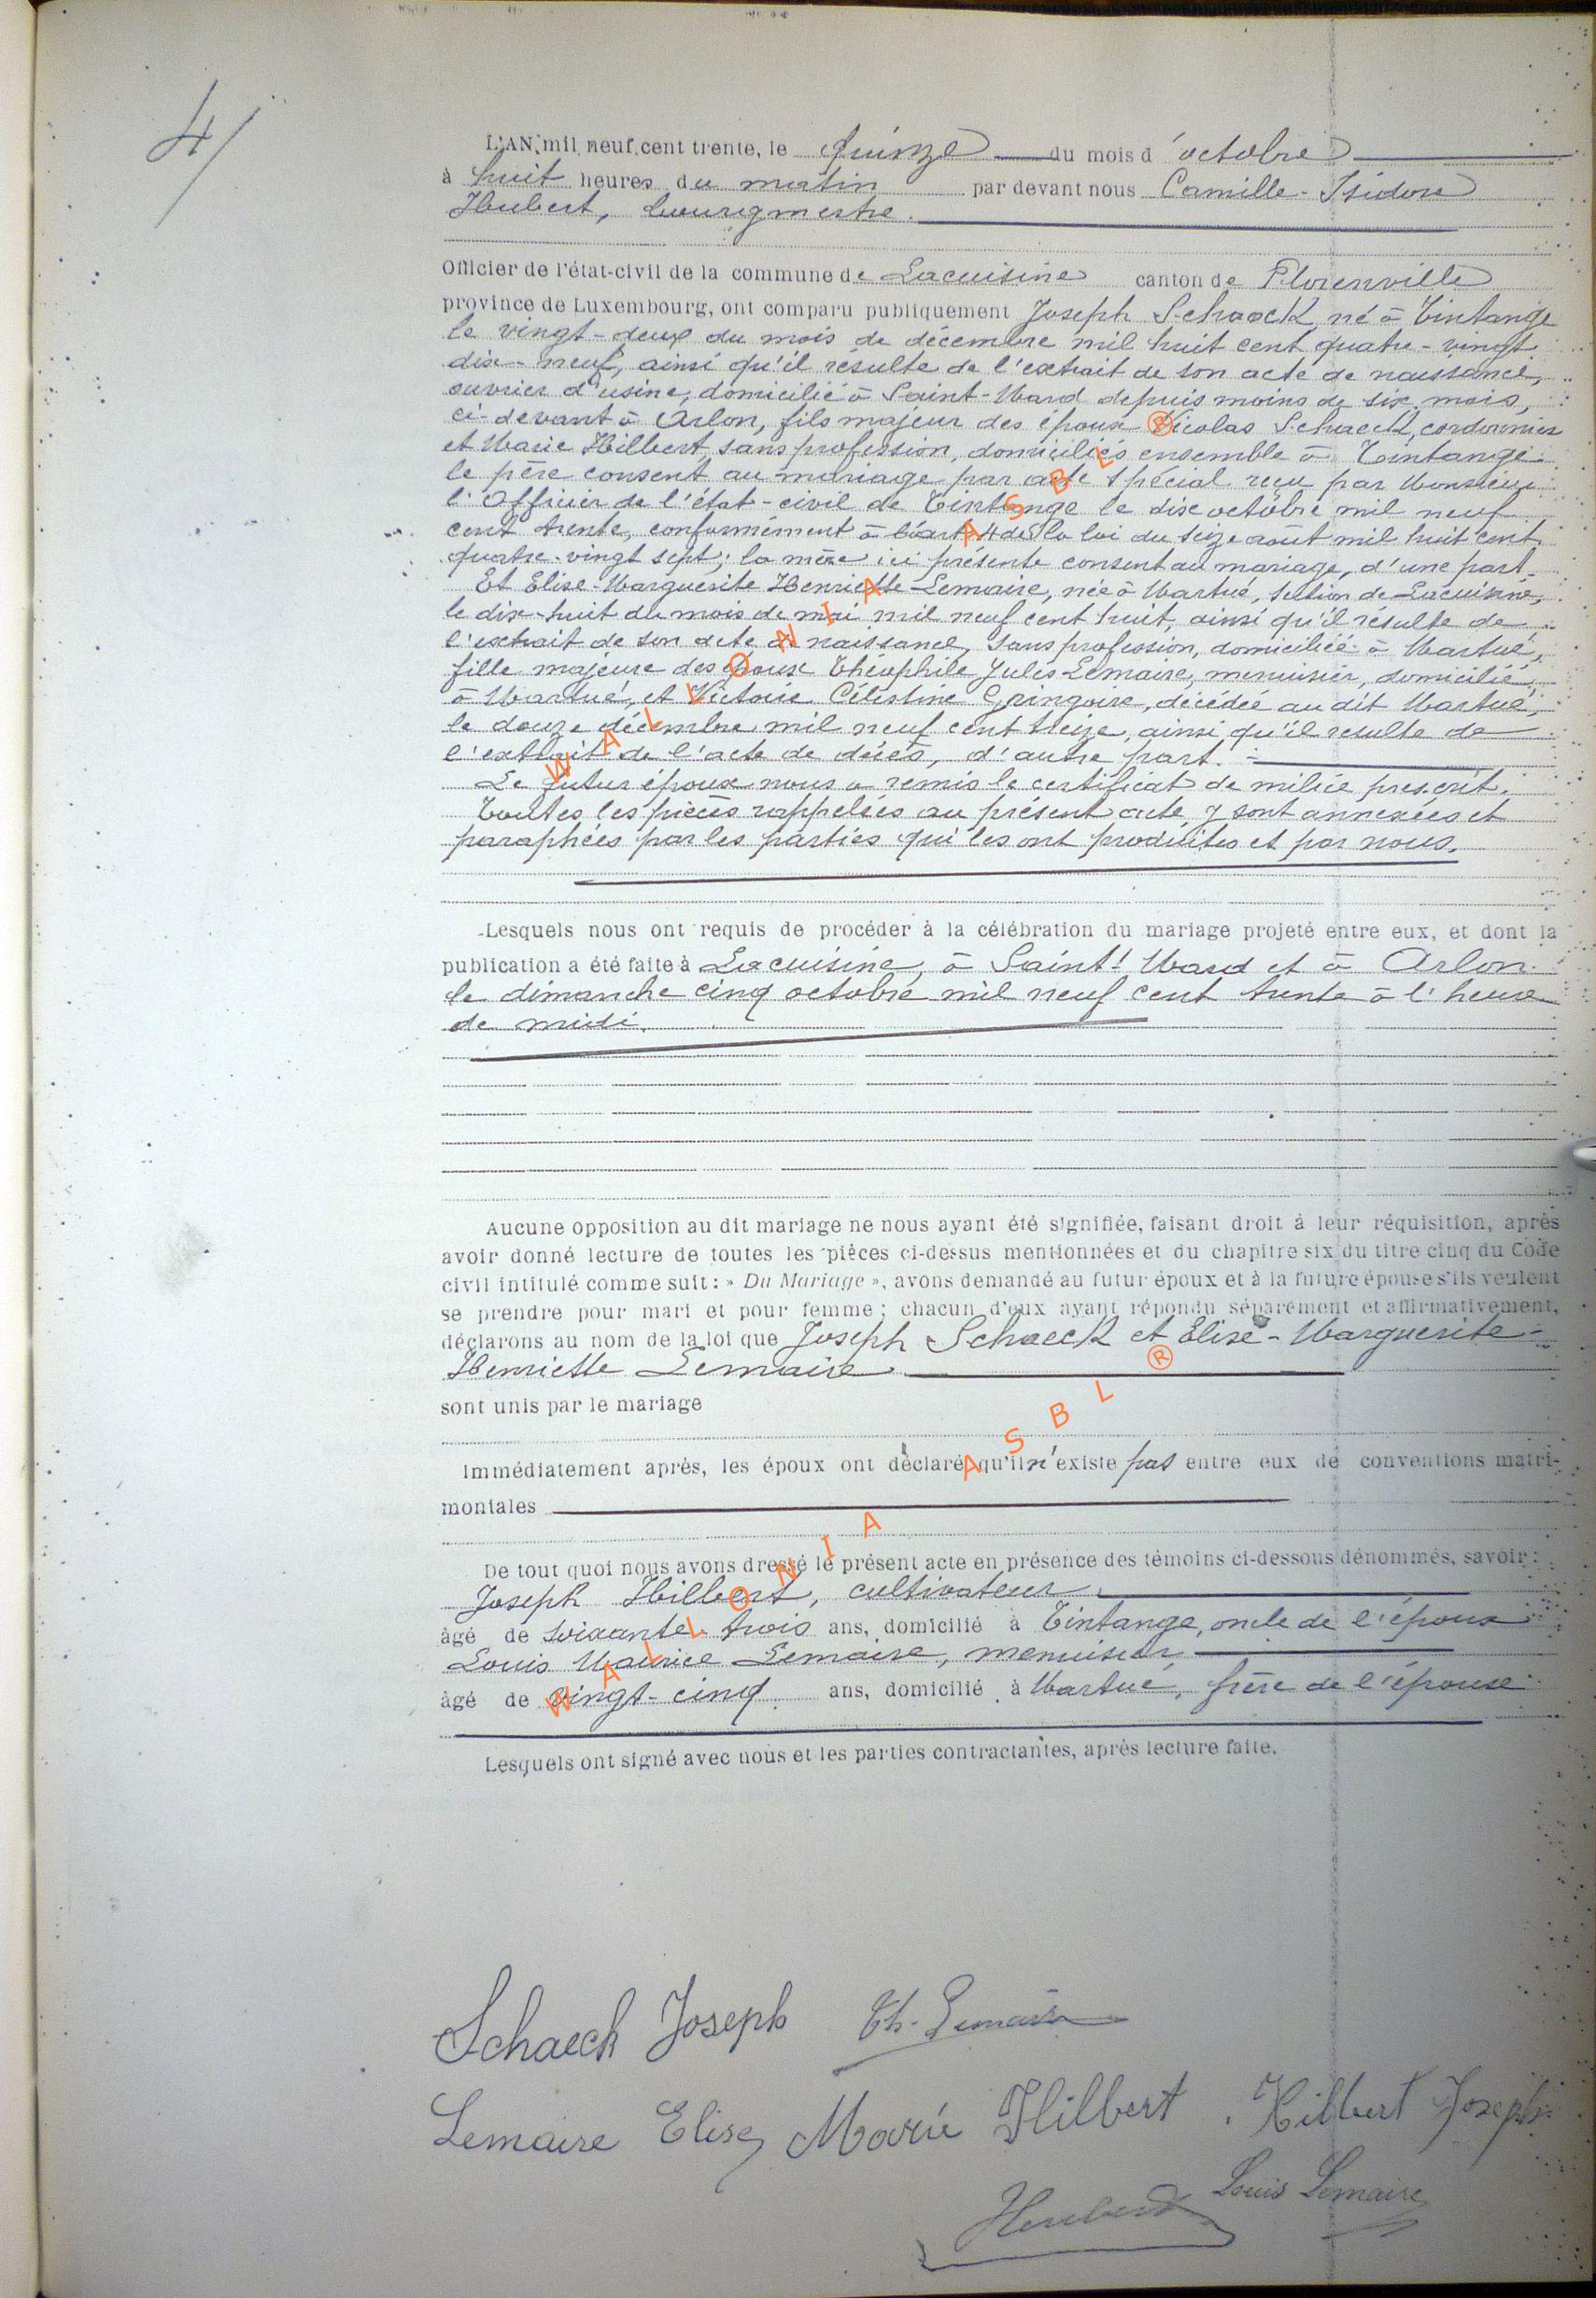 4/
L'AN mil neuf cent trente, le quinze du mois d'octobre
à huit heures du matin par devant nous Camille-Isidore
Hubert, bourgmestre.
Officier de l'état-civil de la commune de Lacuisine canton de Florenville
province de Luxembourg, ont comparu publiquement Joseph Schaeck né à Tintange
le vingt-deux du mois de décembre mil huit cent quatre-vingt
dix-neuf, ainsi qu'il résulte de l'extrait de son acte de naissance,
ouvrier d'usine, domicilié à Saint-Mard depuis moins de six mois,
ci-devant à Arlon, fils majeur des époux Nicolas Schaeck, cordonnier
et Marie Hilbert, sans profession, domiciliés ensemble à Tintange
le père consent au mariage par acte spécial reçu par Monsieur
l'Officier de l'état-civil de Tintange le dix octobre mil neuf
cent trente, conformément à l'art 4 de la loi du seize août mil huit cent
quatre-vingt sept; la mère ici présente consent au mariage, d'une part
Et Elise-Marguerite Henriette Lemaire, née à Martué, section de Lacuisine,
le dix-huit du mois de mai mil neuf cent huit, ainsi qu'il résulte de
l'extrait de son acte de naissance, sans profession, domiciliée à Martué,
fille majeure des époux Théophile Jules Lemaire, menuisier, domicilié
à Martué, et Victorie Célestine Gringoire, décédée au dit Martué,
le douze décembre mil neuf cent treize, ainsi qu'il résulte de
l'extrait de l'acte de décès, d'autre part.
Le futur époux nous a remis le certificat de milice prescrit.
Toutes les pièces rappelées au présent acte y sont annexées et
paraphées par les parties qui les ont produites et par nous.
Lesquels nous ont requis de procéder à la célébration du mariage projeté entre eux, et dont la
publication a été faite à Lacuisine, à Saint-Mard et à Arlon
le dimanche cinq octobre mil neuf cent trente à l'heure
de midi.
Aucune opposition au dit mariage ne nous ayant été signifiée, faisant droit à leur réquisition, après
avoir donné lecture de toutes les pièces ci-dessus mentionnées et du chapitre six du titre cinq du Code
civil intitulé comme suit : » Du Mariage », avons demandé au futur époux et à la future épouse s'ils veulent
se prendre pour mari et pour femme ; chacun d'eux ayant répondu séparément et affirmativement,
déclarons au nom de la loi que Joseph Schaeck et Elise-Marguerite-
Henriette Lemaire
sont unis par le mariage
Immédiatement après, les époux ont déclaré qu'il n'existe pas entre eux de conventions matri-
moniales
De tout quoi nous avons dressé le présent acte en présence des témoins ci-dessous dénommés, savoir :
Joseph Hilbert, cultivateur
âgé de soixante-trois ans, domicilié à Tintange, oncle de l'époux
Louis Maurice Lemaire, menuisier,
âgé de vingt-cinq ans, domicilié à Martué, frère de l'épouse
Lesquels ont signé avec nous et les parties contractantes, après lecture faite.
Schaeck Joseph Th. Lemaire
Lemaire Elise Marie Hilbert Hilbert Joseph
Louis Lemaire
Hubert
WALLONIA ASBL ®
WALLONIA ASBL ®